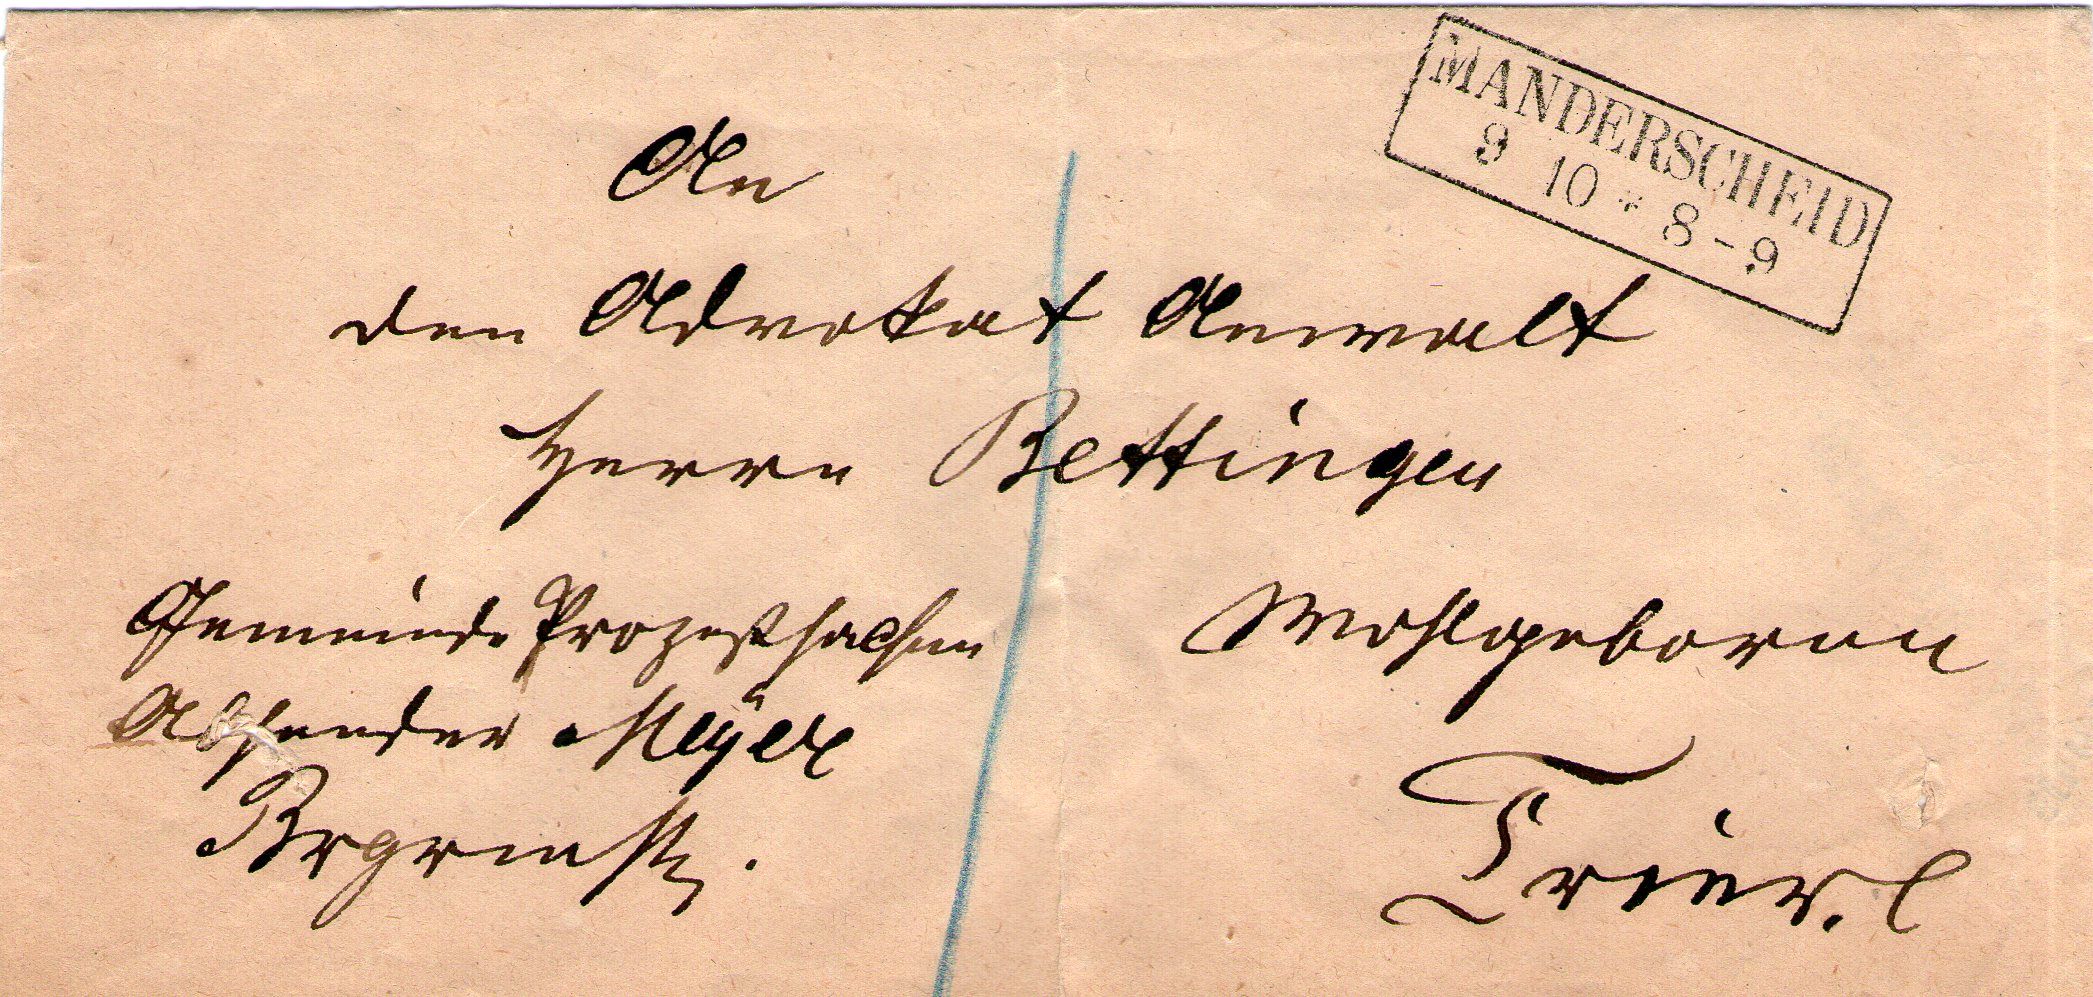 MANDERSCHEID
9 10 * 8-9
An
den Advokat Anwalt
Herrn Bettingen
Gemeinde Prozeßsachen
Wohlgeboren
Absender Meyer
Trier.